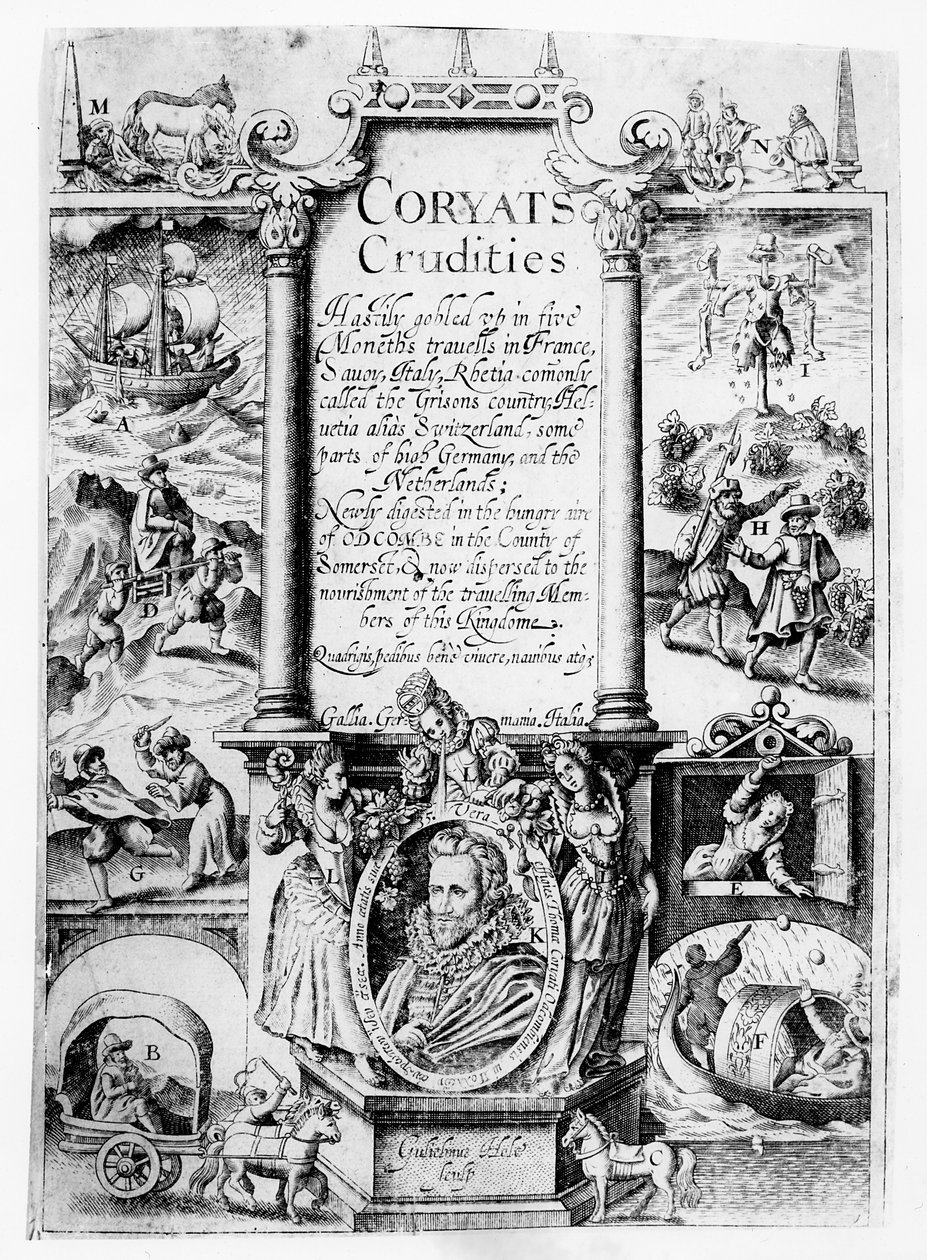 M
N
CORYATS
Crudities
Hastily gobled vp in five
Moneths travells in France,
Savoy, Italy, Rhetia com̄only
called the Grisons country, Hel-
vetia aliàs Switzerland, some
parts of high Germany, and the
Netherlands;
Newly digested in the hungry aire
of ODCOMBE in the County of
Somerset, & now dispersed to the
nourishment of the travelling Mem-
bers of this Kingdome.
Quadrigis, pedibus benè vivere, navibus atq;
Gallia. Ger- mania. Italia.
A
I
D
H
G
L
L
E
K
B
F
C
Vera
effigies Thomæ Coryati Odcombiensis
Anno ætatis suæ
Gulielmus Hole
sculp